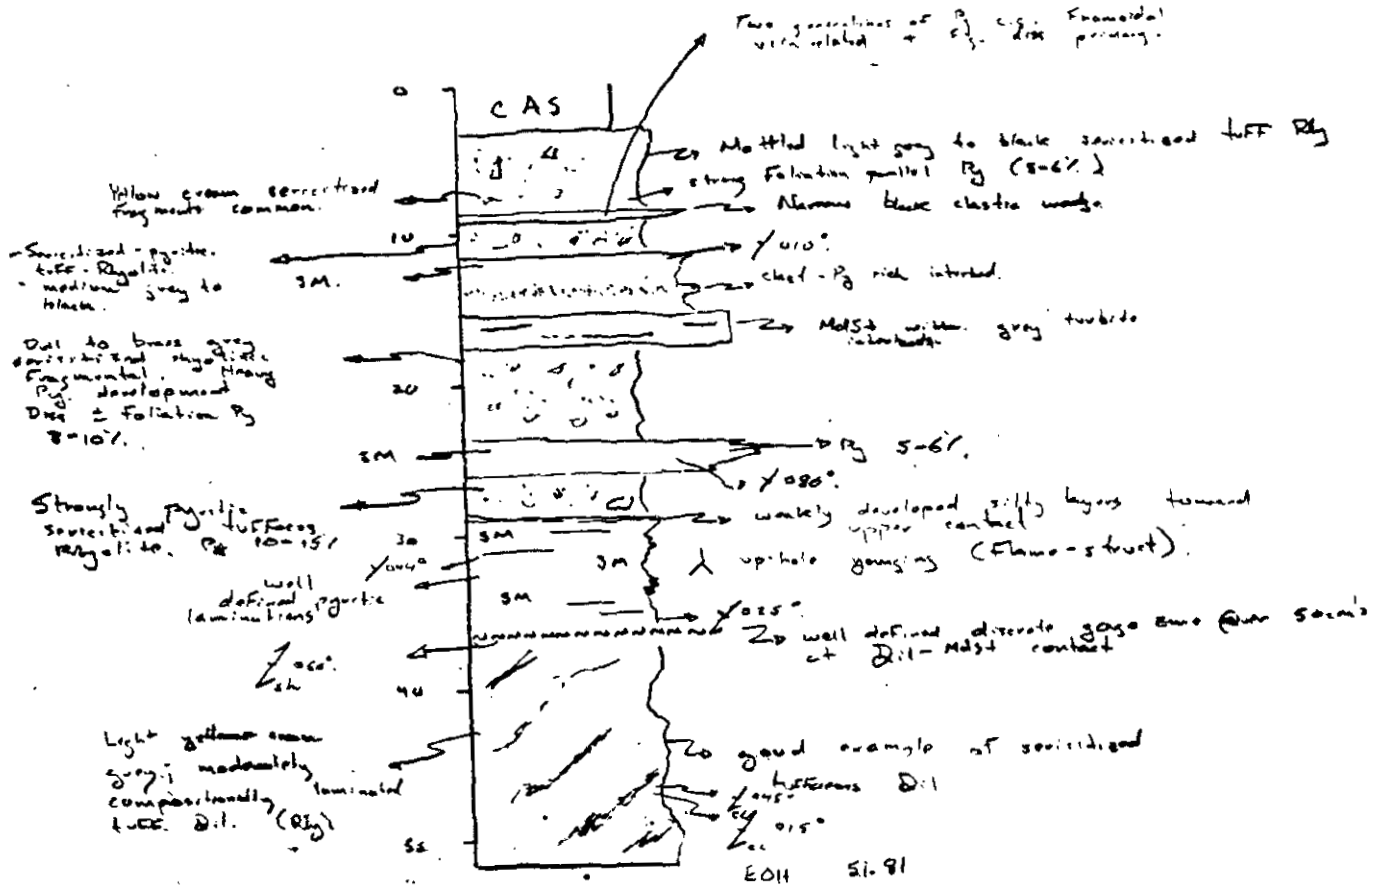 Two generations of Py c.g. Framoidal
vein related + f.g. diss primary.
0
CAS
Mottled light grey to black sericitized tuff Rhy
strong Foliation parallel Py (5-6%)
Narrow black clastic wedge
Yellow cream sericitized
fragments common.
10
010°
- Sericitized - pyritic
tuff - Rhyolite.
- medium grey to
black.
SM.
chert - Py rich interbed.
Mdst with grey turbidite
interbeds
Dull to brass grey
sericitized rhyolitic
Fragmental. Heavy
Py development
Diss ± Foliation Py
8-10%.
20
SM
Py 5-6%.
080°.
Strongly pyritic
sericitized tuffaceous
Rhyolite. 10-15%
weakly developed silty layers toward
upper contact
30
SM
SM
up-hole younging (Flame-struct).
044°
well
defined pyritic
laminations
SM
025°
well defined discrete gouge zone over 50cm's
at Dil-Mdst contact
060°.
Sh
40
Light yellow cream
grey; moderately
compositionally laminated
tuff. Dil. (Rhy)
good example of sericitized
tuffaceous Dil
045°
015°
EOH 51.81